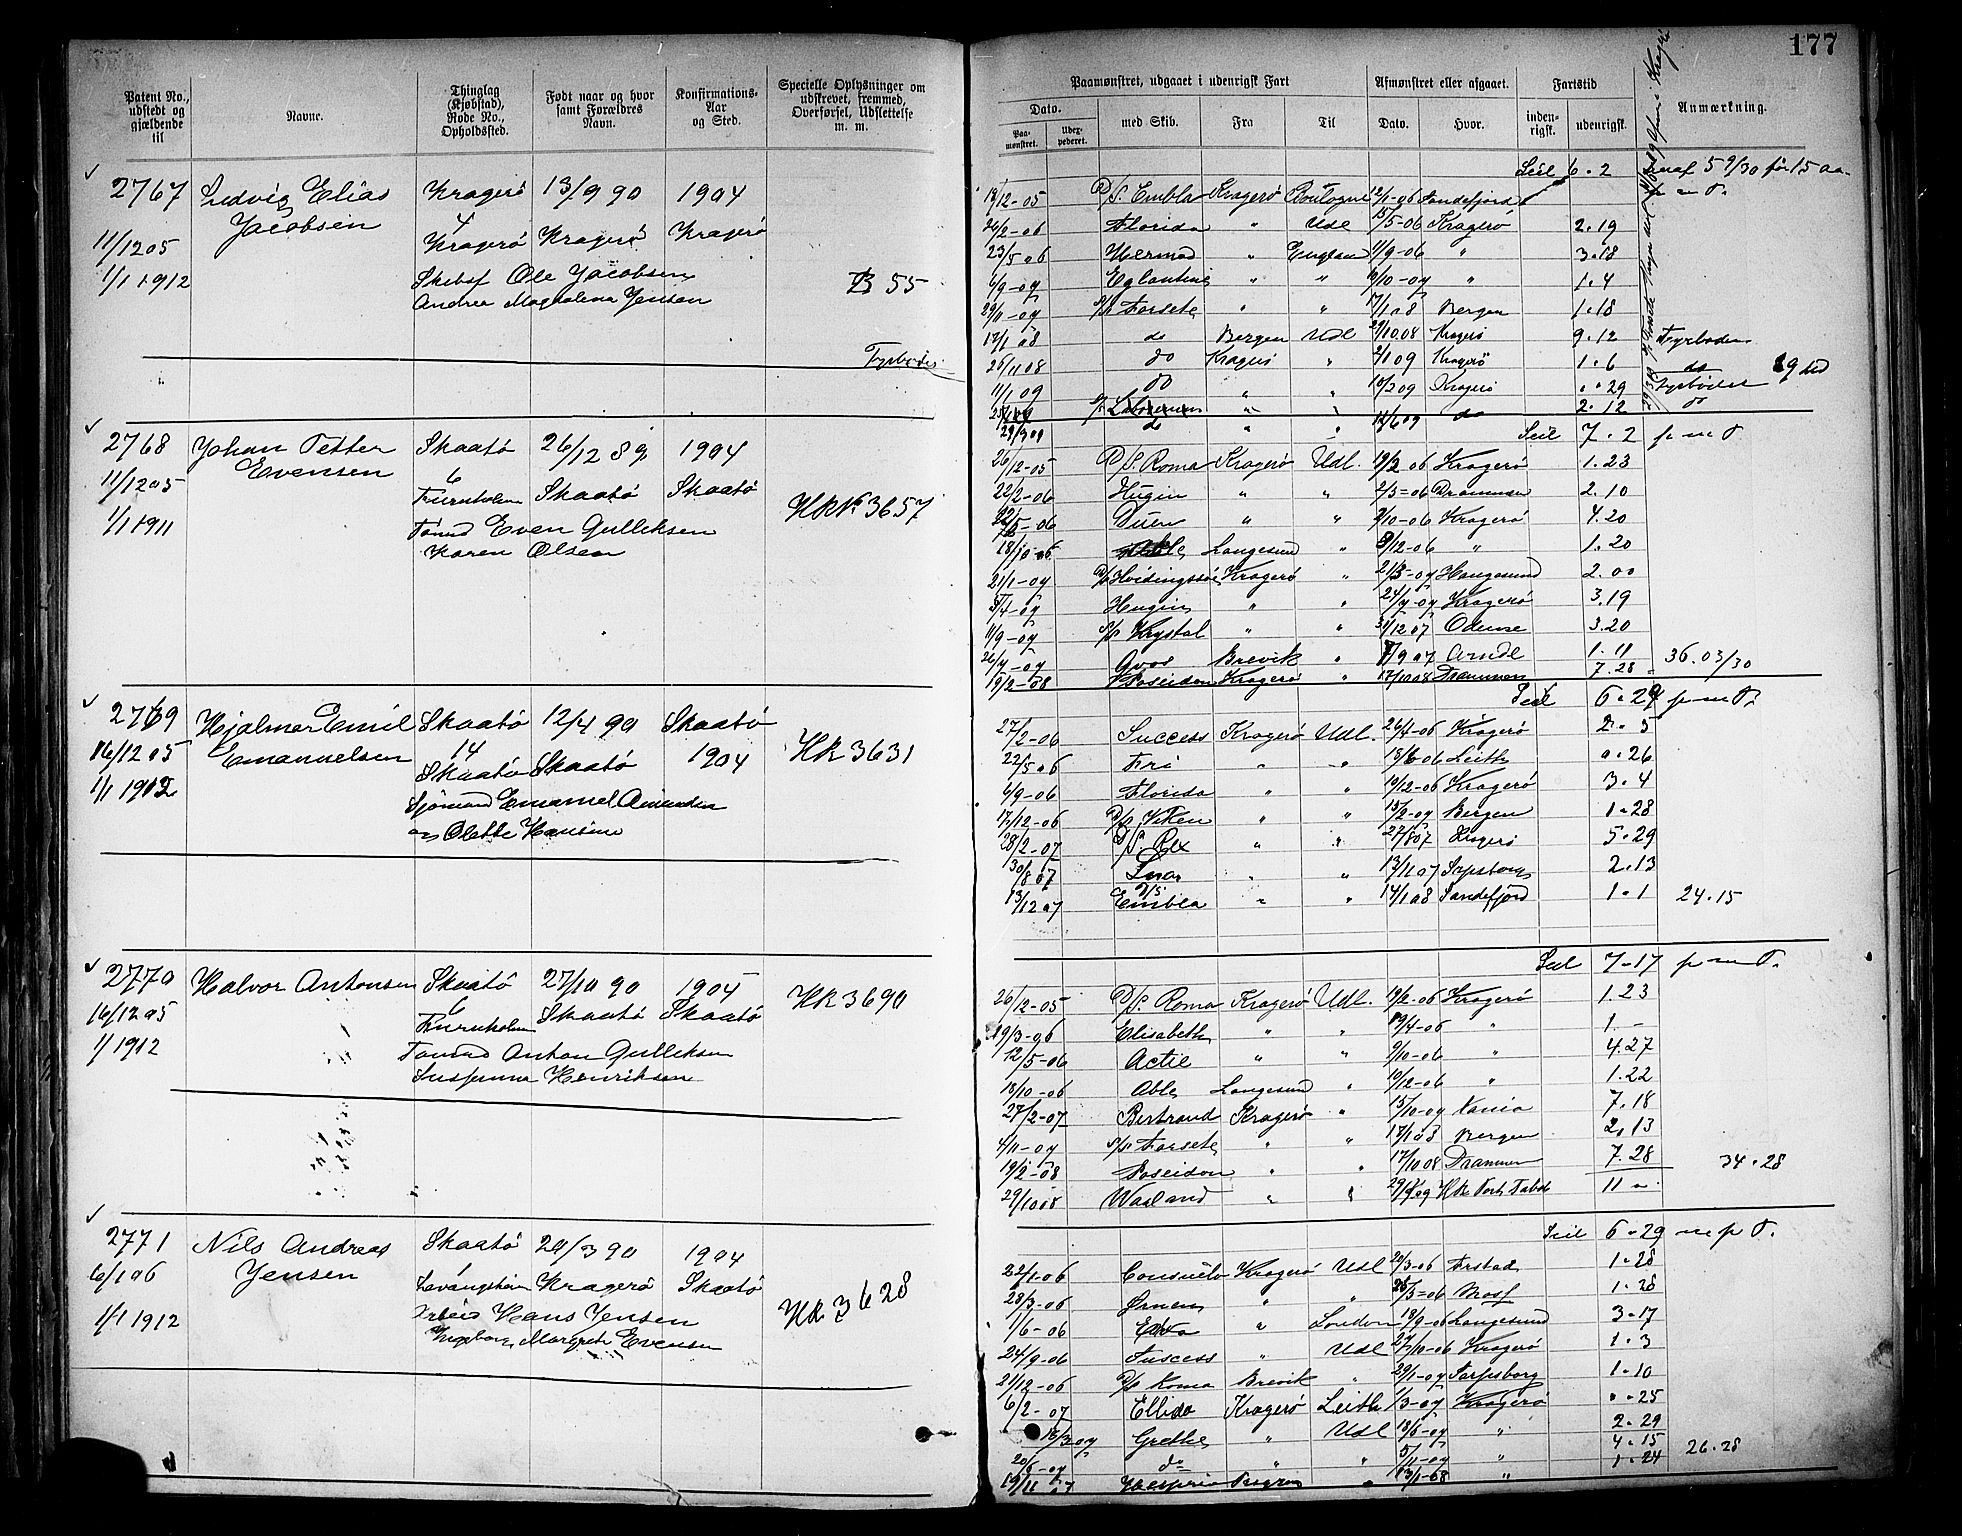 177
Patent No., udstedt og gjældende til
Navne.
Thinglag (Kjøbstad), Rode No., Opholdssted.
Født naar og hvor samt Forældres Navn.
Konfirmations- Aar og Sted.
Specielle Oplysninger om udskrevet, fremmed, Overførsel, Udslettelse m. m.
Paamønstret, udgaaet i udenrigsk Fart
Afmønstret eller afgaaet.
Fartstid
Anmærkning.
Dato.
Paa- mønstret.
med Skib.
Fra
Til
Dato.
Hvor.
inden- rigsk.
udenrigsk.
2767 Ludvig Elias Kragerø 13/9 90 1904
Jacobsen 4
11/12 05 Kragerø Kragerø Kragerø
1/1 1912 Skibsf Ole Jacobsen B 55
Andrea Magdalena Jensen
Fyrbøder
Seil 6.2
19/12-05 D/S. Embla Kragerø Boulogne 12/1-06 Sandefjord
26/2-06 Florida " Udl 15/5-06 Kragerø 2.19
23/5 06 Hermod " England 11/9-06 " 3.18
Eglantine " " " 1.4
29/11-07 Forsete " " 17/1 08 Bergen 1.18
17/1 08 do Bergen Udl 29/10 08 Kragerø 9.12 Fyrbøder
26/11 08 do Kragerø " 2/1 09 Kragerø 1.6 do
11/1 09 do " " 10/2 09 Kragerø ".29 Fyrbøder
2.12
2768 Johan Petter Skaatø 26/12 89 1904
Evensen 6
11/12 05 Skaatø Skaatø
1/1 1911 Tømd Even Gulleksen HkNo 3657
Karen Olsen
Seil 7.2 p m D.
26/12-05 D/S. Roma Kragerø Udl. 19/2 06 Kragerø 1.23
22/2-06 Hugin " " 2/5-06 Drammen 2.10
22/5-06 Duen " " 2/10-06 Kragerø 4.20
18/10-06 Langesund " 8/12-06 " 1.20
21/1-07 D/S Hvidingsøe Kragerø " 21/3-07 Haugesund 2.00
3/4-07 Hugin " " 24/7-07 Kragerø 3.19
11/9-07 S/S Krystal " " 31/12 07 Odense 3.20
26/7-07 Brevik " 7/9 07 Arndl 1.11 36.03/30
19/2-08 Poseidon Kragerø " 17/10 08 Drammen 7.28
2769 Hjalmar Emil Skaatø 12/4 90 Skaatø
16/12 05 Emanuelsen 14 1904
1/1 1912 Skaatø Skaatø HK 3631
Sjømand Emanuel Amundsen
og Olette Hansine
Seil 6.29 p m D.
27/2-06 Success Kragerø Udl. 26/4-06 Kragerø 2.5
22/5 06 Fri " " 18/6-06 Leith 0.26
6/9-06 Florida " " 10/12-06 Kragerø 3.4
17/12-06 D/S Viken " " 15/2-07 Bergen 1.28
28/2-07 D/S. Rex " " 27/8 07 Kragerø 5.29
30/8 07 " " 13/11 07 Sarpsborg 2.13
13/12 07 D/S Embla " " 14/1 08 Sandefjord 1.1 24.15
2770 Halvor Antonsen Skaatø 27/10 90 1904
16/12 05 6 Skaatø Skaatø HK 3690
1/1 1912 Tømmd Anton Gulleksen
Henriksen
Seil 7-17 p m D.
26/12-05 D/S. Roma Kragerø Udl. 19/2-06 Kragerø 1.23
19/3-06 Elisabeth " " 19/4-06 " 1.-
12/5-06 Actie " " 9/10-06 " 4.27
18/10-06 Able Langesund " 10/12-06 " 1.22
27/2-07 Bertrand Kragerø " 15/10-07 7.18
4/11-07 S/S Forsete " " 17/1 08 Bergen 2.13
19/2-08 Poseidon " " 17/10 08 Drammen 7.28 34.28
29/10 08 Waaland " " 11
2771 Nils Andreas Skaatø 20/3 90 1904
6/1 06 Jensen 1 Kragerø Skaatø
1/1 1912 Arbeid Hans Jensen HK 3628
Ingeborg Margrete Evensen
Seil 6.29 m p D.
22/1-06 Consuelo Kragerø Udl 20/3-06 1.28
28/3-06 Ørnen " " 26/5-06 Moss 1.28
1/6-06 " London 18/9-06 Langesund 3.17
24/9-06 Success " Udl 27/10-06 Kragerø 1.3
21/12-06 D/S Roma Brevik " 29/1-07 Sarpsborg 1.10
6/2-07 Ellida Kragerø Leith 1/3-07 Kragerø ".25
16/3 07 Grethe " Udl 13/6-07 " 2.29
20/6-07 do " 5/11-07 " 4.15 26.28
19/11 07 " 13/1-08 " 1.24